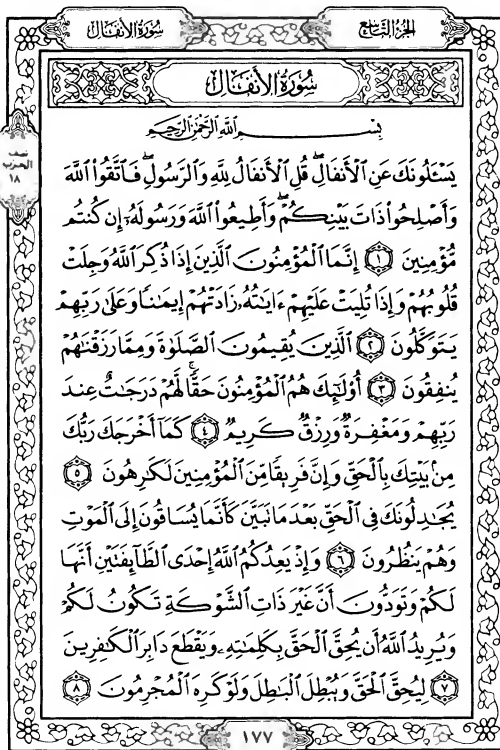 سُورَةُ الأَنفَالِ
الجُزْءُ التَّاسِعُ
سُورَةُ الأَنفَالِ
بِسْمِ اللَّهِ الرَّحْمَٰنِ الرَّحِيمِ
نصف
الحزب
١٨
يَسْـَٔلُونَكَ عَنِ ٱلْأَنفَالِ ۖ قُلِ ٱلْأَنفَالُ لِلَّهِ وَٱلرَّسُولِ ۖ فَٱتَّقُوا۟ ٱللَّهَ
وَأَصْلِحُوا۟ ذَاتَ بَيْنِكُمْ ۖ وَأَطِيعُوا۟ ٱللَّهَ وَرَسُولَهُۥٓ إِن كُنتُم
مُّؤْمِنِينَ ١ إِنَّمَا ٱلْمُؤْمِنُونَ ٱلَّذِينَ إِذَا ذُكِرَ ٱللَّهُ وَجِلَتْ
قُلُوبُهُمْ وَإِذَا تُلِيَتْ عَلَيْهِمْ ءَايَٰتُهُۥ زَادَتْهُمْ إِيمَٰنًا وَعَلَىٰ رَبِّهِمْ
يَتَوَكَّلُونَ ٢ ٱلَّذِينَ يُقِيمُونَ ٱلصَّلَوٰةَ وَمِمَّا رَزَقْنَٰهُمْ
يُنفِقُونَ ٣ أُو۟لَٰٓئِكَ هُمُ ٱلْمُؤْمِنُونَ حَقًّا ۚ لَّهُمْ دَرَجَٰتٌ عِندَ
رَبِّهِمْ وَمَغْفِرَةٌ وَرِزْقٌ كَرِيمٌ ٤ كَمَآ أَخْرَجَكَ رَبُّكَ
مِنۢ بَيْتِكَ بِٱلْحَقِّ وَإِنَّ فَرِيقًا مِّنَ ٱلْمُؤْمِنِينَ لَكَٰرِهُونَ ٥
يُجَٰدِلُونَكَ فِى ٱلْحَقِّ بَعْدَ مَا تَبَيَّنَ كَأَنَّمَا يُسَاقُونَ إِلَى ٱلْمَوْتِ
وَهُمْ يَنظُرُونَ ٦ وَإِذْ يَعِدُكُمُ ٱللَّهُ إِحْدَى ٱلطَّآئِفَتَيْنِ أَنَّهَا
لَكُمْ وَتَوَدُّونَ أَنَّ غَيْرَ ذَاتِ ٱلشَّوْكَةِ تَكُونُ لَكُمْ
وَيُرِيدُ ٱللَّهُ أَن يُحِقَّ ٱلْحَقَّ بِكَلِمَٰتِهِۦ وَيَقْطَعَ دَابِرَ ٱلْكَٰفِرِينَ
٧ لِيُحِقَّ ٱلْحَقَّ وَيُبْطِلَ ٱلْبَٰطِلَ وَلَوْ كَرِهَ ٱلْمُجْرِمُونَ ٨
١٧٧